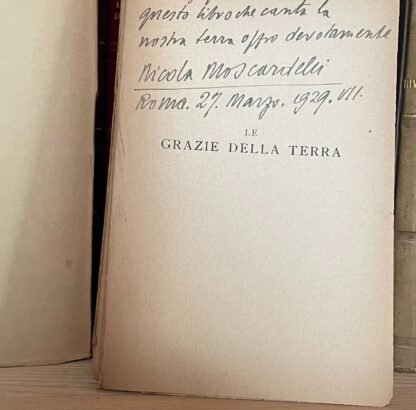 questo libro che canta la
nostra terra offro devotamente
Nicola Moscardelli
Roma. 27. Marzo. 1929. VII.
LE
GRAZIE DELLA TERRA